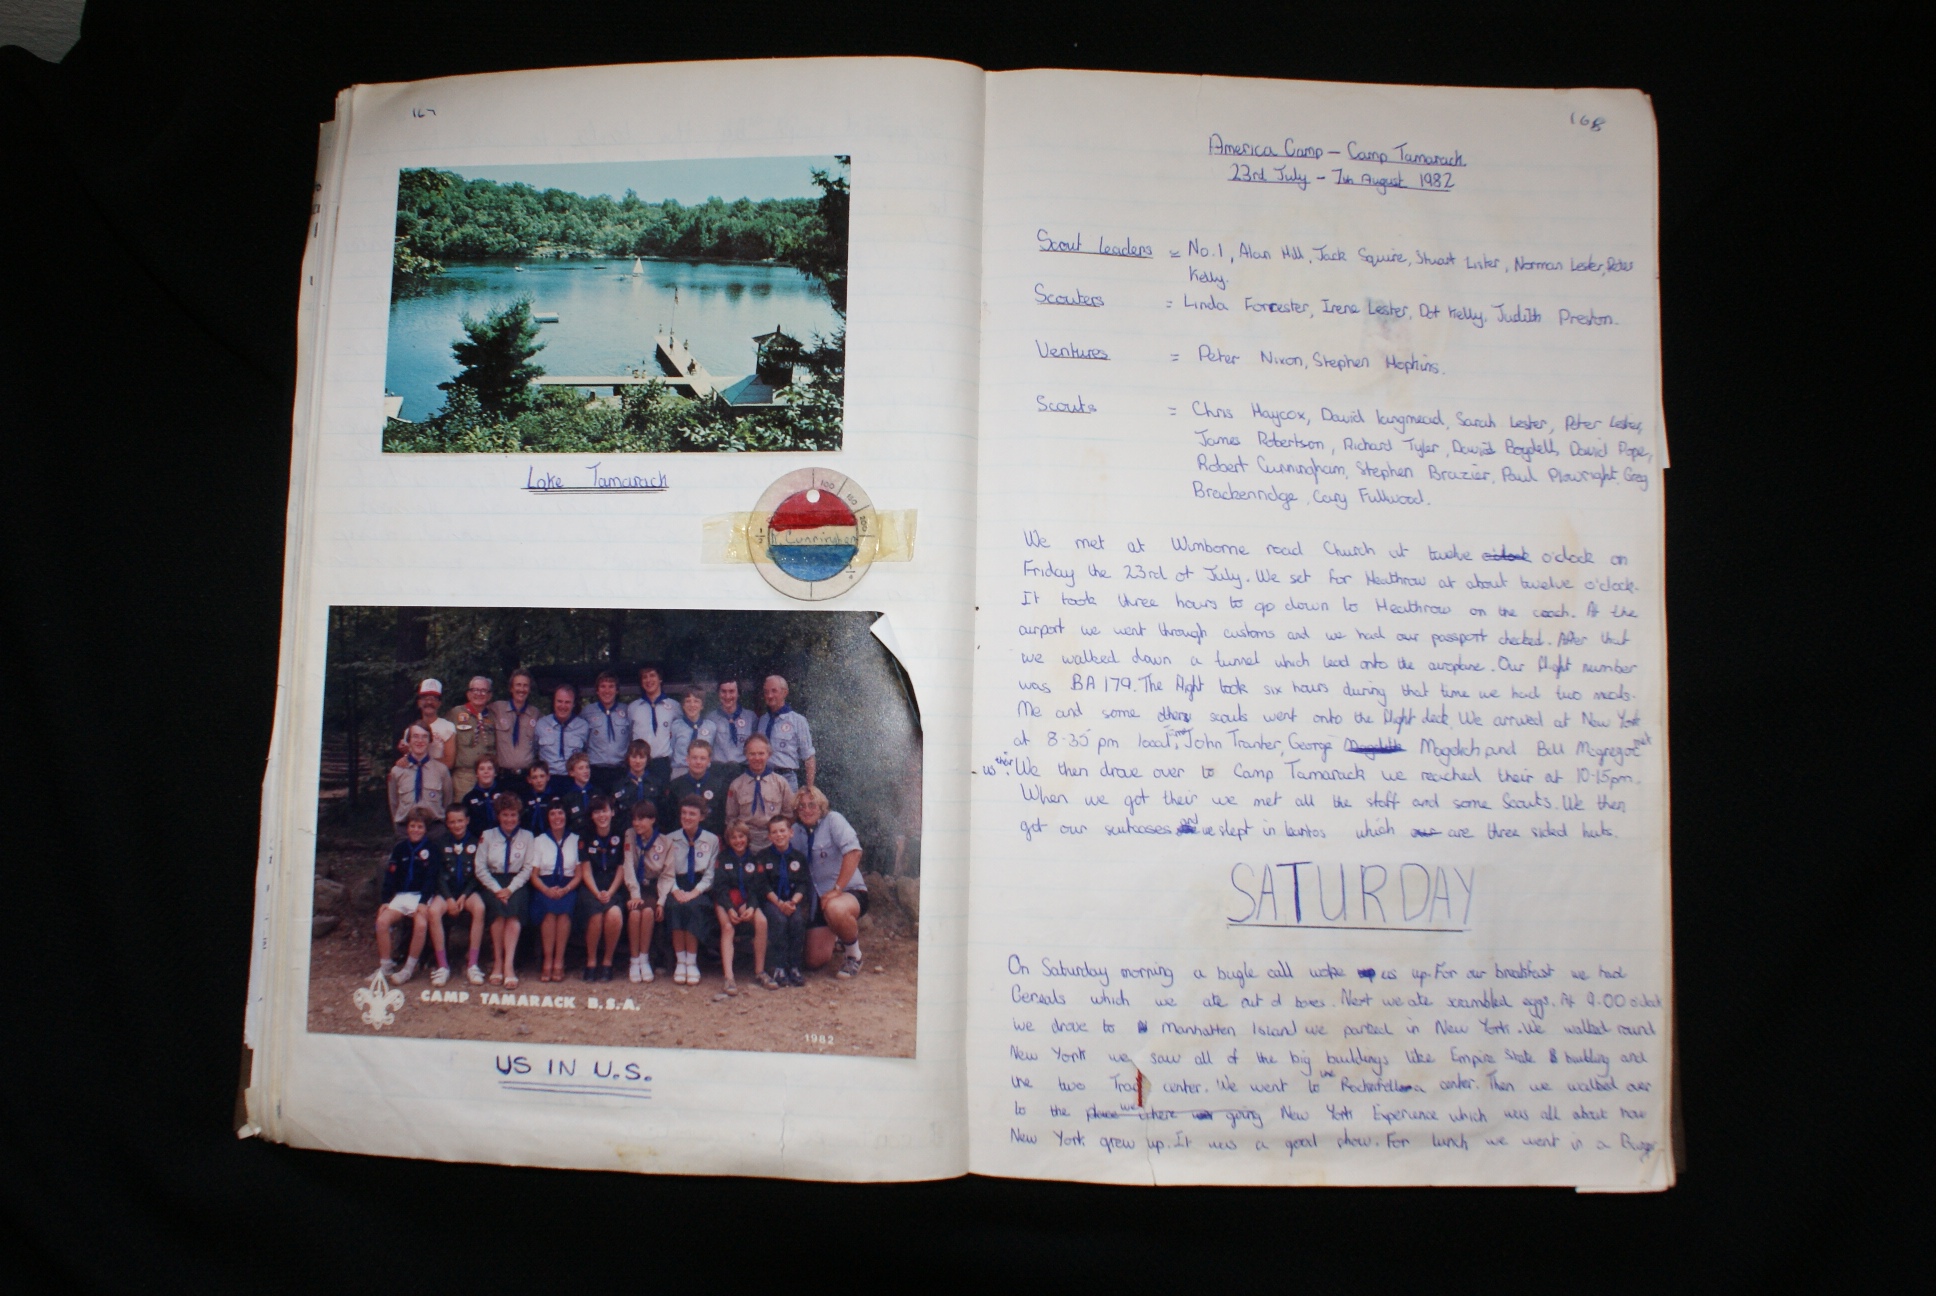 167
Lake Tamarach
100
R. Cunningham
CAMP TAMARACK B.S.A.
1982
US IN U.S.
168
America Camp - Camp Tamarach
23rd July - 7th August 1982
Scout Leaders = No.1, Alan Hill, Jack Squire, Stuart Lister, Norman Lester, Peter
Kelly.
Scouters = Linda Forrester, Irene Lester, Dot Kelly, Judith Preston.
Ventures = Peter Nixon, Stephen Hopkins.
Scouts = Chris Haycox, David Langmead, Sarah Lester, Peter Lester,
James Robertson, Richard Tyler, David Boydell, David Pope,
Robert Cunningham, Stephen Brazier, Paul Plowright, Greg
Brackenridge, Cary Fullwood.
We met at Wimborne road Church at twelve o'clock o'clock on
Friday the 23rd of July. We set for Heathrow at about twelve o'clock.
It took three hours to go down to Heathrow on the coach. At the
airport we went through customs and we had our passport checked. After that
we walked down a tunnel which lead onto the airoplane. Our flight number
was BA 179. The flight took six hours during that time we had two meals.
Me and some others scouts went onto the flight deck. We arrived at New York
at 8-35 pm local time, John Tranter, George Mogelich and Bill Mcgregor met
us their. We then drove over to Camp Tamarack we reached their at 10-15pm.
When we got their we met all the staff and some Scouts. We then
got our suitcases and we slept in which are three sided huts.
SATURDAY
On Saturday morning a bugle call woke up us up. For our breakfast we had
Cereals which we ate out of boxes. Next we ate scrambled eggs. At 9.00 o'clock
we drove to Manhatten Island we parked in New York. We walked round
New York we saw all of the big buildings like Empire State building and
the two Trad center. We went to the center. Then we walked over
to the place we where going New York Experience which was all about how
New York grew up. It was a good show. For lunch we went in a Burger